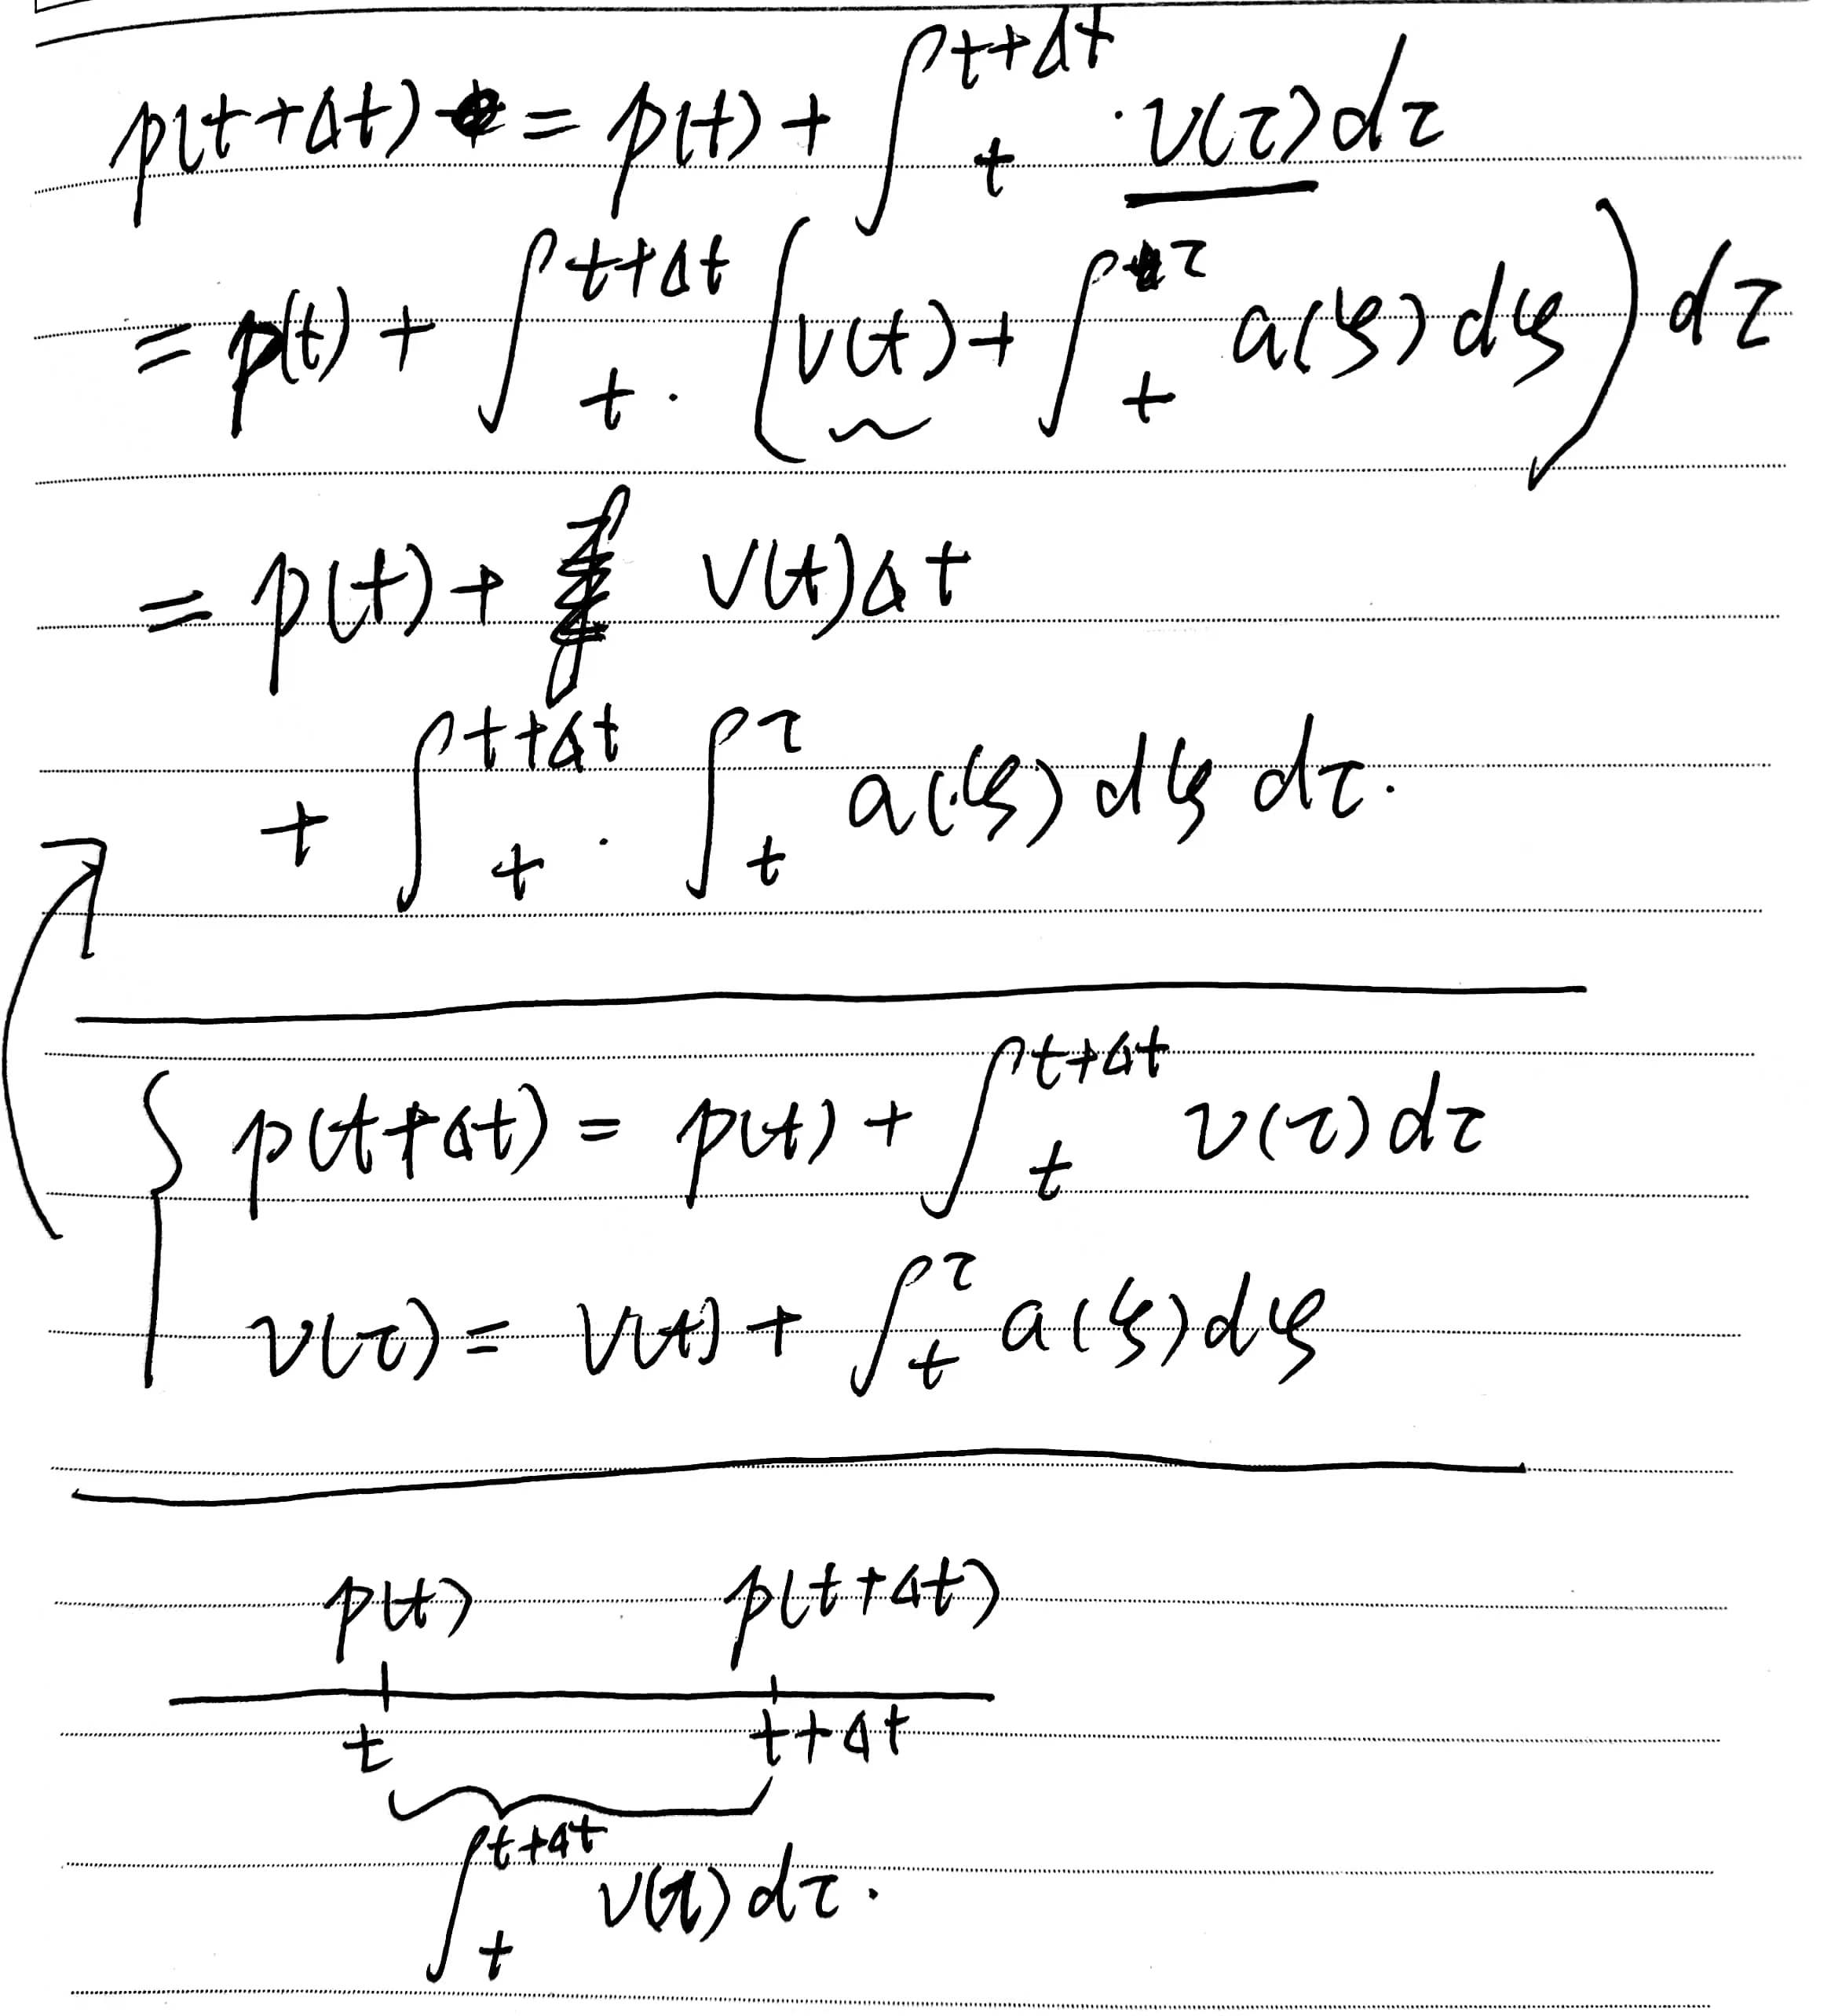 p(t+Δt) = p(t) + ∫_t^{t+Δt} v(τ)dτ
= p(t) + ∫_t^{t+Δt} (v(t) + ∫_t^τ a(ξ)dξ) dτ
= p(t) + v(t)Δt
+ ∫_t^{t+Δt} ∫_t^τ a(ξ) dξ dτ.
p(t+Δt) = p(t) + ∫_t^{t+Δt} v(τ)dτ
v(τ) = v(t) + ∫_t^τ a(ξ)dξ
p(t) p(t+Δt)
t t+Δt
∫_t^{t+Δt} v(τ)dτ.